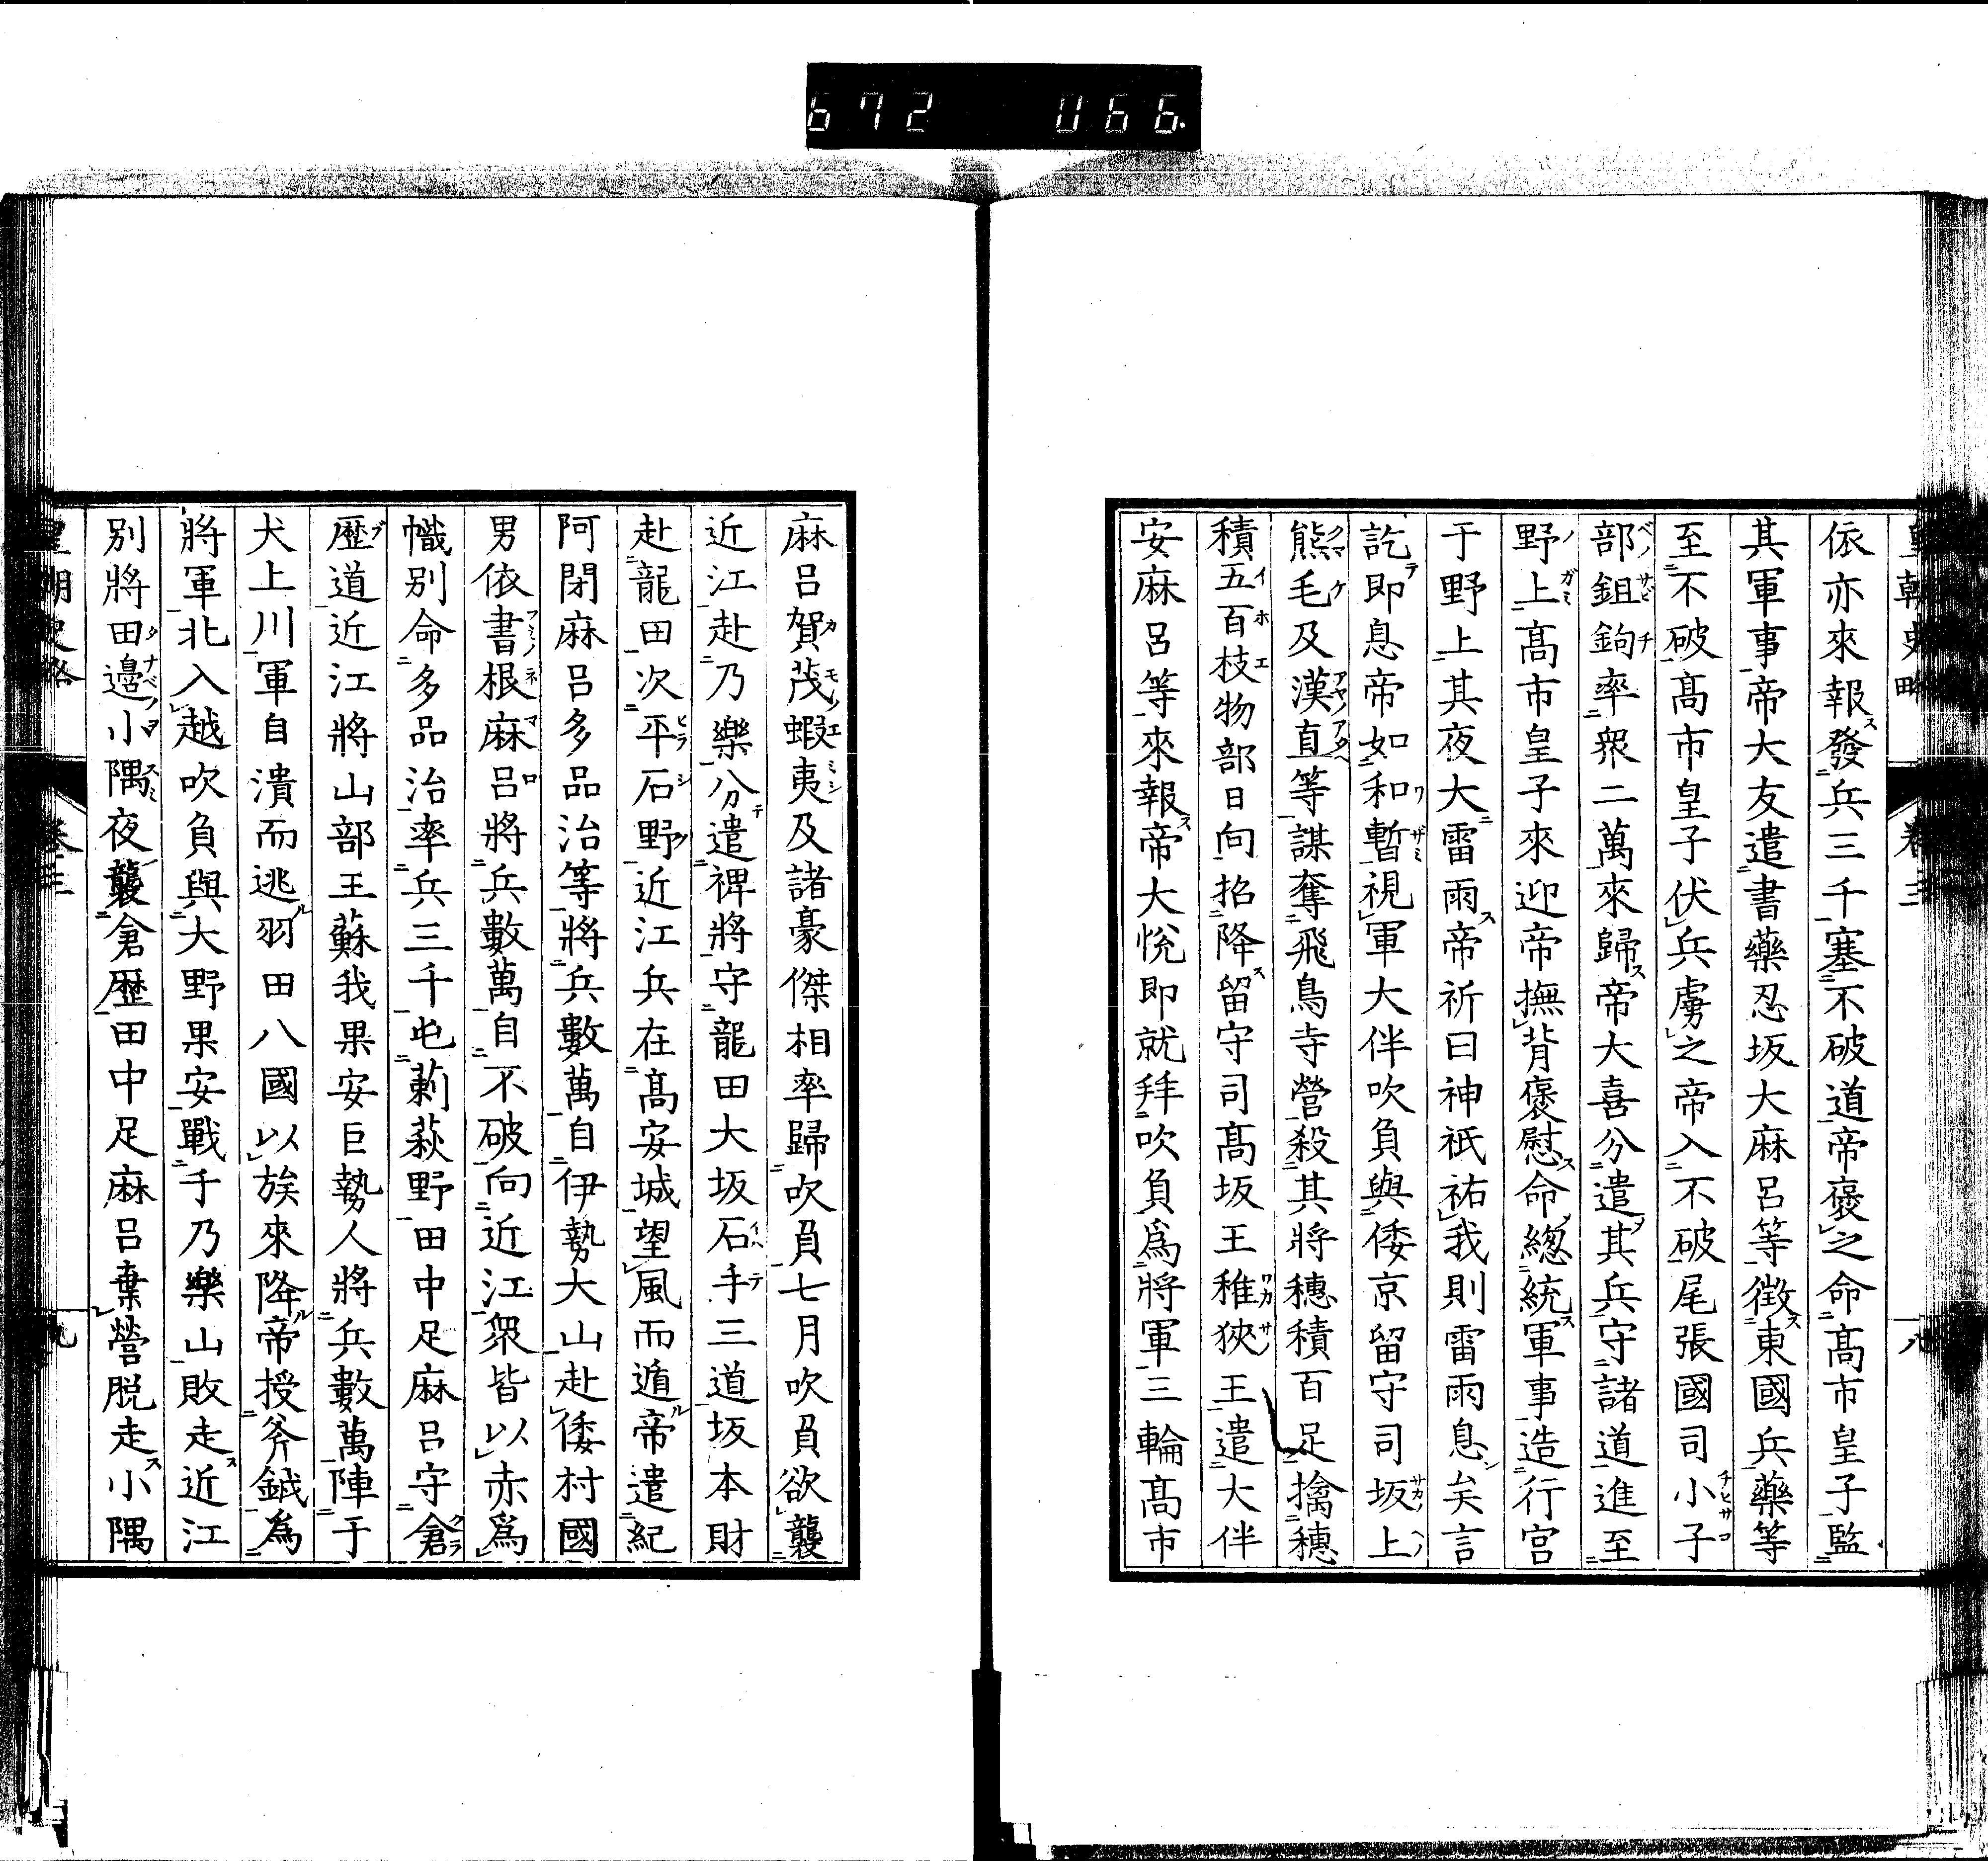 672 066.
皇朝史略 卷三 十九
依亦來報發兵三千塞不破道帝褒之命髙市皇子監
其軍事帝大友遣書藥忍坂大麻呂等徴東國兵藥等
至不破髙市皇子伏兵虜之帝入不破尾張國司小子
部鉏鉤率衆二萬來歸帝大喜分遣其兵守諸道進至
野上髙市皇子來迎帝撫背褒慰命總統軍事造行宮
于野上其夜大雷雨帝祈曰神祇祐我則雷雨息矣言
訖即息帝如和蹔視軍大伴吹負與倭京留守司坂上
熊毛及漢直等謀奪飛鳥寺營殺其將穗積百足擒穗
積五百枝物部日向招降留守司髙坂王稚狹王遣大伴
安麻呂等來報帝大悅即就拜吹負爲將軍三輪髙市
麻呂賀茂蝦夷及諸豪傑相率歸吹負七月吹負欲襲
近江赴乃樂分遣裨將守龍田大坂石手三道坂本財
赴龍田次平石野近江兵在髙安城望風而遁帝遣紀
阿閉麻呂多品治等將兵數萬自伊勢大山赴倭村國
男依書根麻呂將兵數萬自不破向近江衆皆以赤爲
幟别命多品治率兵三千屯莿萩野田中足麻呂守倉
歷道近江將山部王蘇我果安巨勢人將兵數萬陣于
犬上川軍自潰而逃羽田八國以族來降帝授斧鉞爲
將軍北入越吹負與大野果安戰于乃樂山敗走近江
别將田邉小隅夜襲倉歷田中足麻呂棄營脱走小隅
皇朝史略 卷三 九